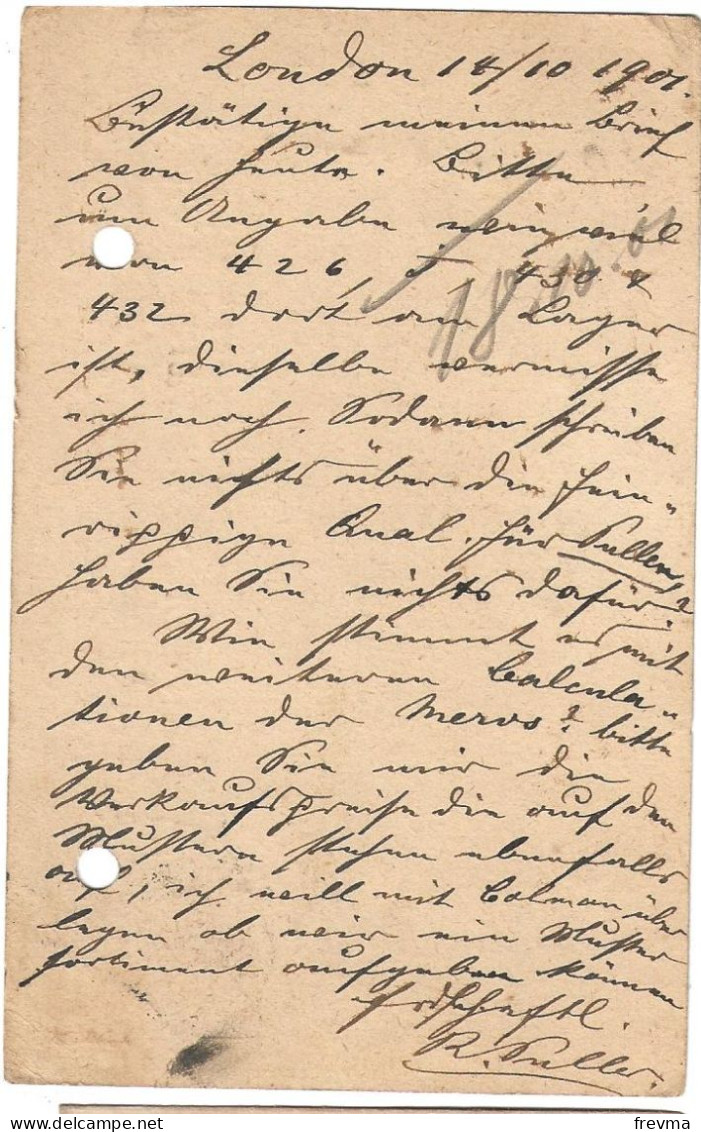 London 14/10 1901.
Bestätige meinen Brief
von heute. Bitte
um Angabe wie viel
von 426, 430 &
432 dort am Lager
ist, dieselbe vermisse
ich noch. Sodann schreiben
Sie nichts über die fein-
rippige Qual. für
haben Sie nichts dafür?
Wie stimmt es mit
den weiteren Calcula-
tionen der Mervs? bitte
geben Sie mir die
Verkaufspreise die auf den
Mustern stehen ebenfalls
auf, ich will mit Colman über
legen ob wir ein Muster
sortiment aufgeben können
R.
18/10.01
frevma